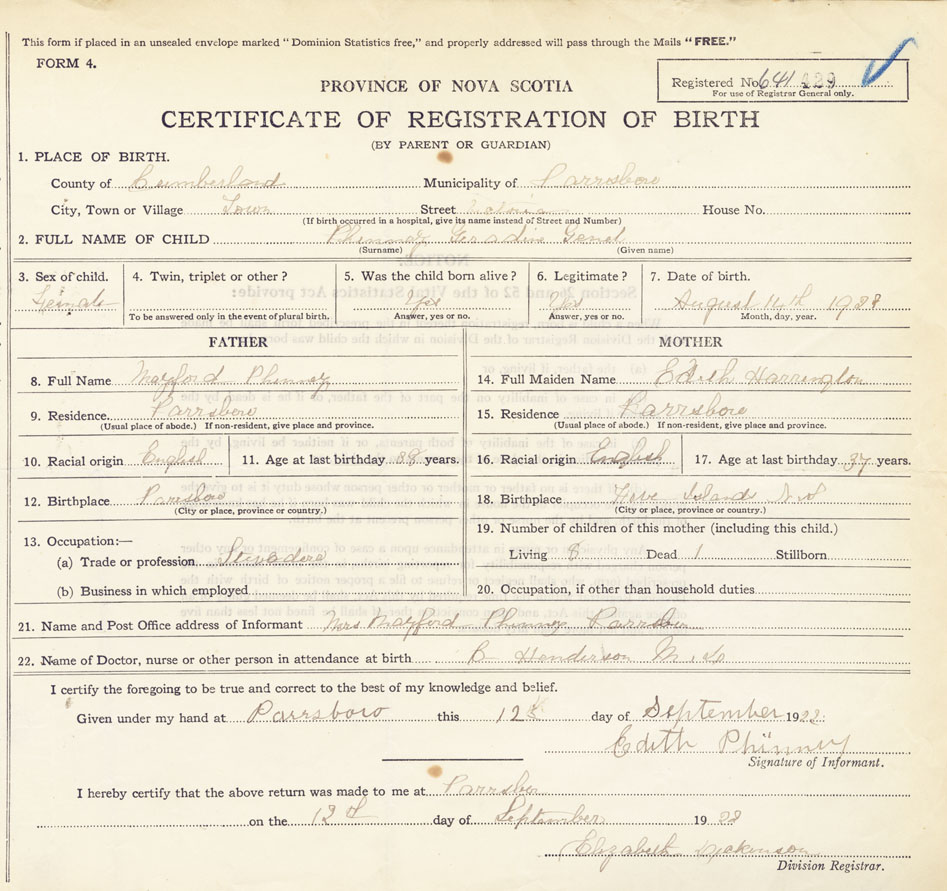 This form if placed in an unsealed envelope marked “Dominion Statistics free,” and properly addressed will pass through the Mails “FREE.”
FORM 4.
Registered No. 641 429
For use of Registrar General only.
PROVINCE OF NOVA SCOTIA
CERTIFICATE OF REGISTRATION OF BIRTH
(BY PARENT OR GUARDIAN)
1. PLACE OF BIRTH.
County of Cumberland Municipality of Parrsboro
City, Town or Village Town Street House No.
(If birth occurred in a hospital, give its name instead of Street and Number)
2. FULL NAME OF CHILD Phinney Geradine
(Surname) (Given name)
3. Sex of child. 4. Twin, triplet or other? 5. Was the child born alive? 6. Legitimate? 7. Date of birth.
Female Yes Yes August 14th
To be answered only in the event of plural birth. Answer, yes or no. Answer, yes or no. Month, day, year.
FATHER MOTHER
8. Full Name Mayford Phinney 14. Full Maiden Name Edith Harrington
9. Residence. Parrsboro 15. Residence Parrsboro
(Usual place of abode.) If non-resident, give place and province. (Usual place of abode.) If non-resident, give place and province.
10. Racial origin English 11. Age at last birthday years. 16. Racial origin English 17. Age at last birthday 37 years.
12. Birthplace Parrsboro 18. Birthplace Five Island N S
(City or place, province or country.) (City or place, province or country.)
13. Occupation:— 19. Number of children of this mother (including this child.)
(a) Trade or profession Stevadore Living 8 Dead 1 Stillborn
(b) Business in which employed 20. Occupation, if other than household duties
21. Name and Post Office address of Informant Mrs Mayford Phinney Parrsboro
22. Name of Doctor, nurse or other person in attendance at birth B Henderson M.D
I certify the foregoing to be true and correct to the best of my knowledge and belief.
Given under my hand at Parrsboro this 12 day of September 1928
Edith Phinney
Signature of Informant.
I hereby certify that the above return was made to me at Parrsboro
on the day of September 1928
Elizabeth Dickinson
Division Registrar.